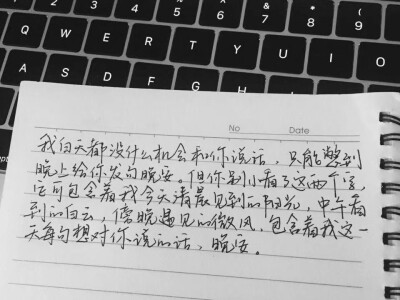 # 3 $ 4 % 5 ^ 6 & 7 * 8 ( 9
Q W E R T Y U I O
A S D F G H J K
No Date
我白天都没什么机会和你说话，只能憋到
晚上给你发句晚安。但你别小看了这两个字，
它可包含着我今天清晨见到的阳光，中午看
到的白云，傍晚遇见的微风，包含着我这一
天每句想对你说的话，晚安。